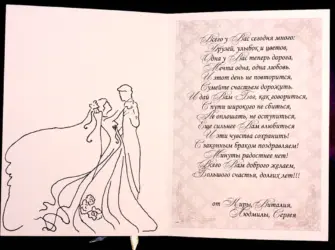 Всего у Вас сегодня много:
Друзей, улыбок и цветов,
Одна у Вас теперь дорога,
Мечта одна, одна любовь.
И этот день не повторится,
Сумейте счастьем дорожить.
И дай Вам Бог, как говорится,
С пути широкого не сбиться,
Не оплошать, не оступиться,
Еще сильнее Вам влюбиться
И эти чувства сохранить!
С законным браком поздравляем!
Минуты радостнее нет!
Всего Вам доброго желаем,
Большого счастья, долгих лет!!!
от Киры, Виталия,
Людмилы, Сергея